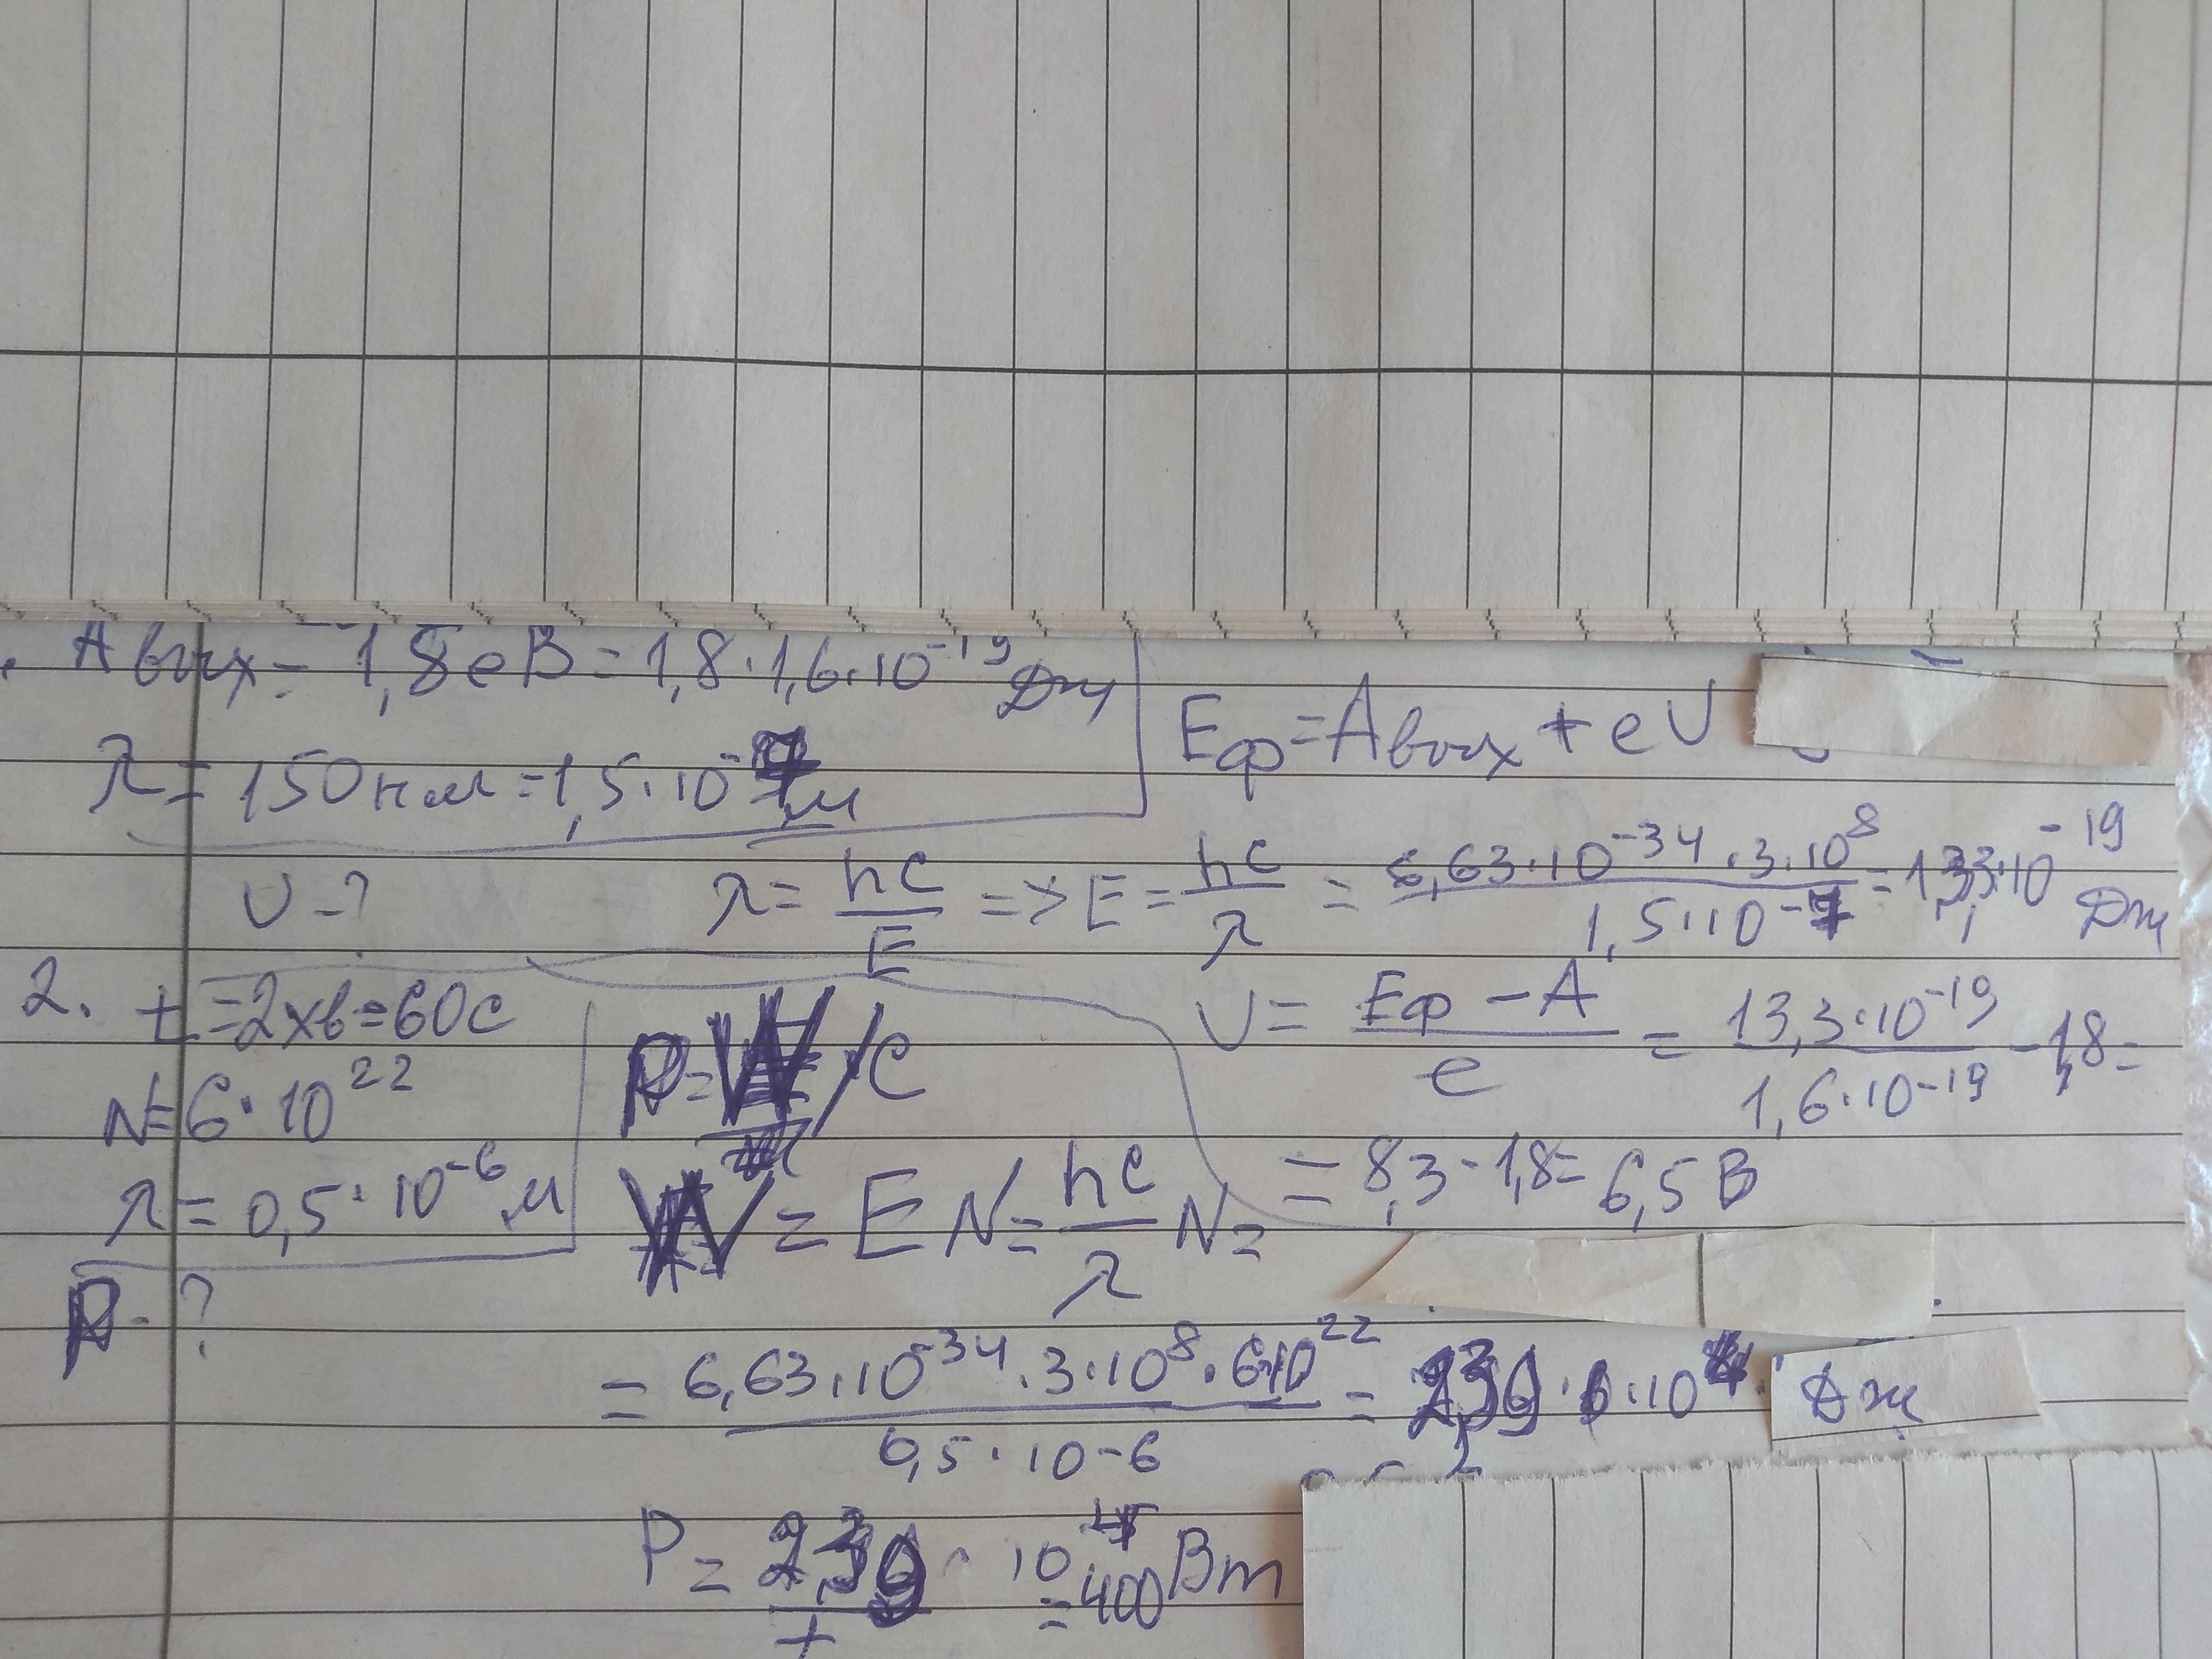 Aвых = 1,8 еВ = 1,8·1,6·10⁻¹⁹ Дж
λ = 150 нм = 1,5·10⁻⁷ м
U - ?
Eф = Aвых + eU
λ = hc/E => E = hc/λ = 6,63·10⁻³⁴·3·10⁸ / 1,5·10⁻⁷ = 13,3·10⁻¹⁹ Дж
U = Eф - A / e = 13,3·10⁻¹⁹ / 1,6·10⁻¹⁹ - 1,8 =
= 8,3 - 1,8 = 6,5 В
2. t = 2 хв = 60 с
N = 6·10²²
λ = 0,5·10⁻⁶ м
P - ?
W = EN = hc/λ N =
= 6,63·10⁻³⁴·3·10⁸·6·10²² / 0,5·10⁻⁶ = Дж
P = 2,39 / t · 10⁴ = 400 Вт